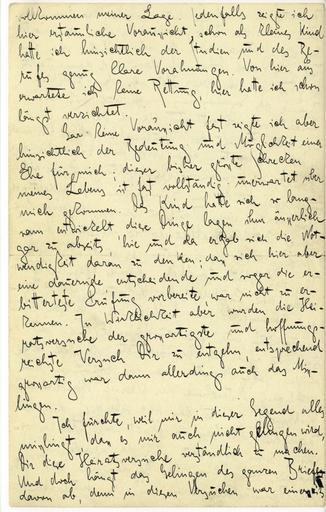 vollkommen meiner Lage. Jedenfalls zeigte ich
hier erstaunliche Voraussicht, schon als kleines Kind
hatte ich hinsichtlich der Studien und des Be-
rufes genug klare Vorahnungen. Von hier aus
erwartete ich keine Rettung, hier hatte ich schon
längst verzichtet.
Gar keine Voraussicht fast zeigte ich aber
hinsichtlich der Bedeutung und Möglichkeit einer
Ehe für mich; dieser bisher grösste Schrecken
meines Lebens ist fast vollständig unerwartet über
mich gekommen. Das Kind hatte sich so lang-
sam entwickelt, diese Dinge lagen ihm äusserlich
gar zu abseits, hie und da ergab sich die Not-
wendigkeit daran zu denken; dass sich hier aber
eine dauernde entscheidende und sogar die er-
bittertste Prüfung vorbereite, war nicht zu er-
kennen. In Wirklichkeit aber wurden die Hei-
ratsversuche der grossartigste und hoffnungs-
reichste Versuch Dir zu entgehn, entsprechend
grossartig war dann allerdings auch das Miss-
lingen.
Ich fürchte, weil mir in dieser Gegend alles
misslingt, dass es mir auch nicht gelingen wird,
Dir diese Heiratsversuche verständlich zu machen.
Und doch hängt das Gelingen des ganzen Briefes
davon ab, denn in diesen Versuchen war einerseits